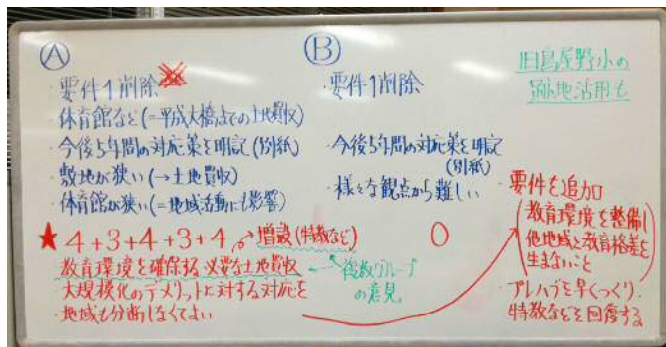 Ⓐ
・要件1削除
体育館など(=平成大橋までの土地買収)
・今後5年間の対応策を明記(別紙)
・敷地が狭い(→土地買収)
・体育館が狭い(=地域活動にも影響)
★4+3+4+3+4 増設(特教など)
教育環境を確保する必要な土地買収
大規模化のデメリットに対する対応を
・地域も分断しなくてよい
複数グループ
の意見
Ⓑ
・要件1削除
・今後5年間の対応策を明記
(別紙)
・様々な観点から難しい
0
旧鳥屋野小の
跡地活用も
・要件を追加
(教育環境を整備し
他地域と教育格差を
生まないこと)
・プレハブを早くつくり、
特教などを回復する